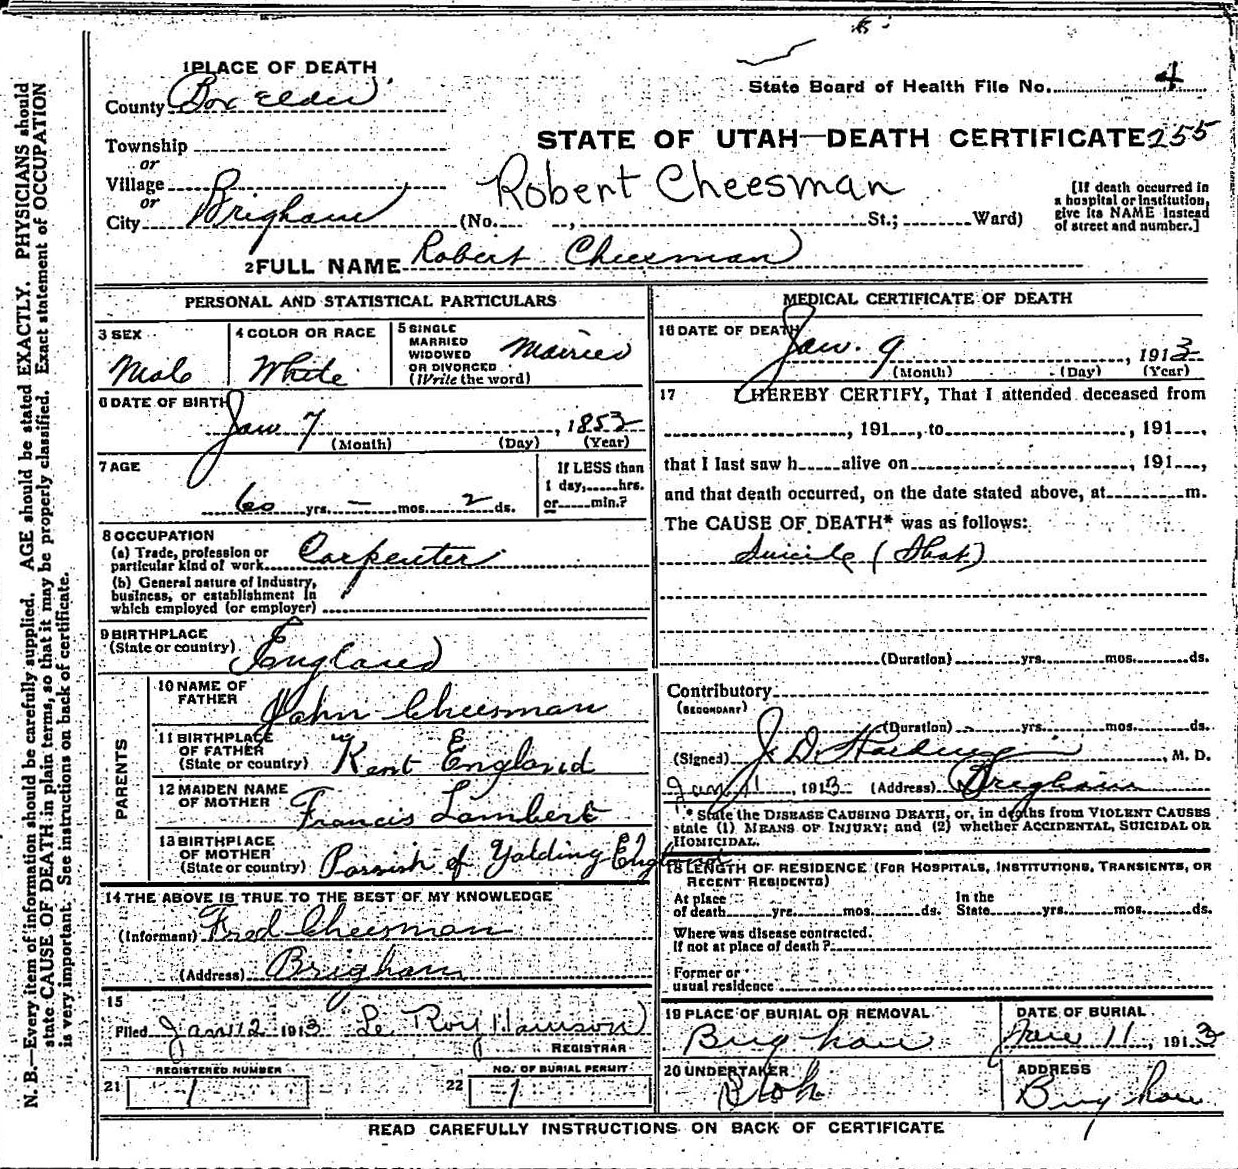 1 PLACE OF DEATH
County Box Elder
State Board of Health File No. 4
Township
or
Village
or
City Brigham
STATE OF UTAH—DEATH CERTIFICATE 255
Robert Cheesman
(No. , St.; Ward)
[If death occurred in
a hospital or institution,
give its NAME instead
of street and number.]
2 FULL NAME Robert Cheesman
PERSONAL AND STATISTICAL PARTICULARS
3 SEX
Male
4 COLOR OR RACE
White
5 SINGLE
MARRIED
WIDOWED
OR DIVORCED
(Write the word)
Married
6 DATE OF BIRTH
Jan 7, 1853
(Month) (Day) (Year)
7 AGE
60 yrs. — mos. 2 ds.
If LESS than
1 day, hrs.
or min.?
8 OCCUPATION
(a) Trade, profession or
particular kind of work Carpenter
(b) General nature of industry,
business, or establishment in
which employed (or employer)
9 BIRTHPLACE
(State or country) England
PARENTS
10 NAME OF
FATHER John Cheesman
11 BIRTHPLACE
OF FATHER
(State or country) Kent England
12 MAIDEN NAME
OF MOTHER Francis Lambert
13 BIRTHPLACE
OF MOTHER
(State or country) Parrish of Yalding England
14 THE ABOVE IS TRUE TO THE BEST OF MY KNOWLEDGE
(Informant) Fred Cheesman
(Address) Brigham
15
Filed Jan 12 1913 Le Roy Harrison
REGISTRAR
21 REGISTERED NUMBER
1
22 NO. OF BURIAL PERMIT
1
MEDICAL CERTIFICATE OF DEATH
16 DATE OF DEATH
Jan. 9, 1913
(Month) (Day) (Year)
17 I HEREBY CERTIFY, That I attended deceased from
, 191 , to , 191 ,
that I last saw h alive on , 191 ,
and that death occurred, on the date stated above, at m.
The CAUSE OF DEATH* was as follows:
Suicide (Shot)
(Duration) yrs. mos. ds.
Contributory
(SECONDARY)
(Duration) yrs. mos. ds.
(Signed) J. D. Harding, M. D.
Jan 11, 1913 (Address) Brigham
* State the DISEASE CAUSING DEATH, or, in deaths from VIOLENT CAUSES
state (1) MEANS OF INJURY; and (2) whether ACCIDENTAL, SUICIDAL OR
HOMICIDAL.
18 LENGTH OF RESIDENCE (FOR HOSPITALS, INSTITUTIONS, TRANSIENTS, OR
RECENT RESIDENTS)
At place
of death yrs. mos. ds.
In the
State yrs. mos. ds.
Where was disease contracted.
If not at place of death?
Former or
usual residence
19 PLACE OF BURIAL OR REMOVAL
Brigham
DATE OF BURIAL
Jan 11, 1913
20 UNDERTAKER
ADDRESS
Brigham
READ CAREFULLY INSTRUCTIONS ON BACK OF CERTIFICATE
N. B.—Every item of information should be carefully supplied. AGE should be stated EXACTLY. PHYSICIANS should
state CAUSE OF DEATH in plain terms, so that it may be properly classified. Exact statement of OCCUPATION
is very important. See instructions on back of certificate.